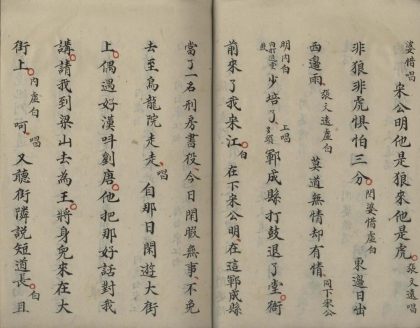 婆惜唱 宋公明他是狼來他是虎 張文遠唱
非狼非虎惧怕三分 閆婆惜虛白 東邊日出
西邊雨 張文遠虛白 莫道無情却有情 同下 宋公
明內白 少培了 上唱 鄆成縣打鼓退了堂衙
前來了我宋江 白 在下宋公明在這鄆成縣
當了一名刑房書役今日閑暇無事不免
去至烏龍院走走 唱 自那日閑遊大街
上偶遇好漢叫劉唐他把那好話對我
講請我到梁山去為王將身兒來在大
街上 內虛白 呵 唱 又聽街隣說短道長 白 且